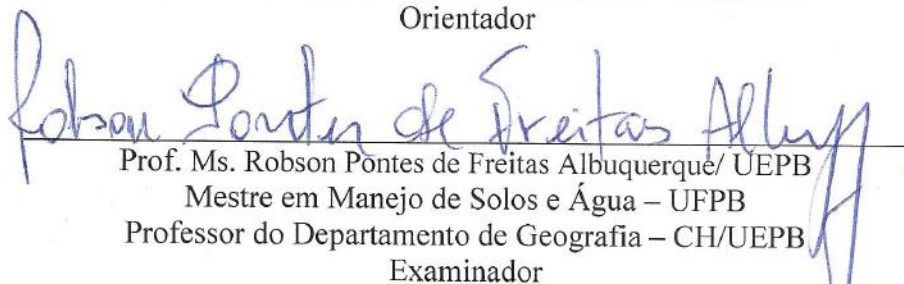 Orientador
Robson Pontes de Freitas Albuq
Prof. Ms. Robson Pontes de Freitas Albuquerque/ UEPB
Mestre em Manejo de Solos e Água – UFPB
Professor do Departamento de Geografia – CH/UEPB
Examinador